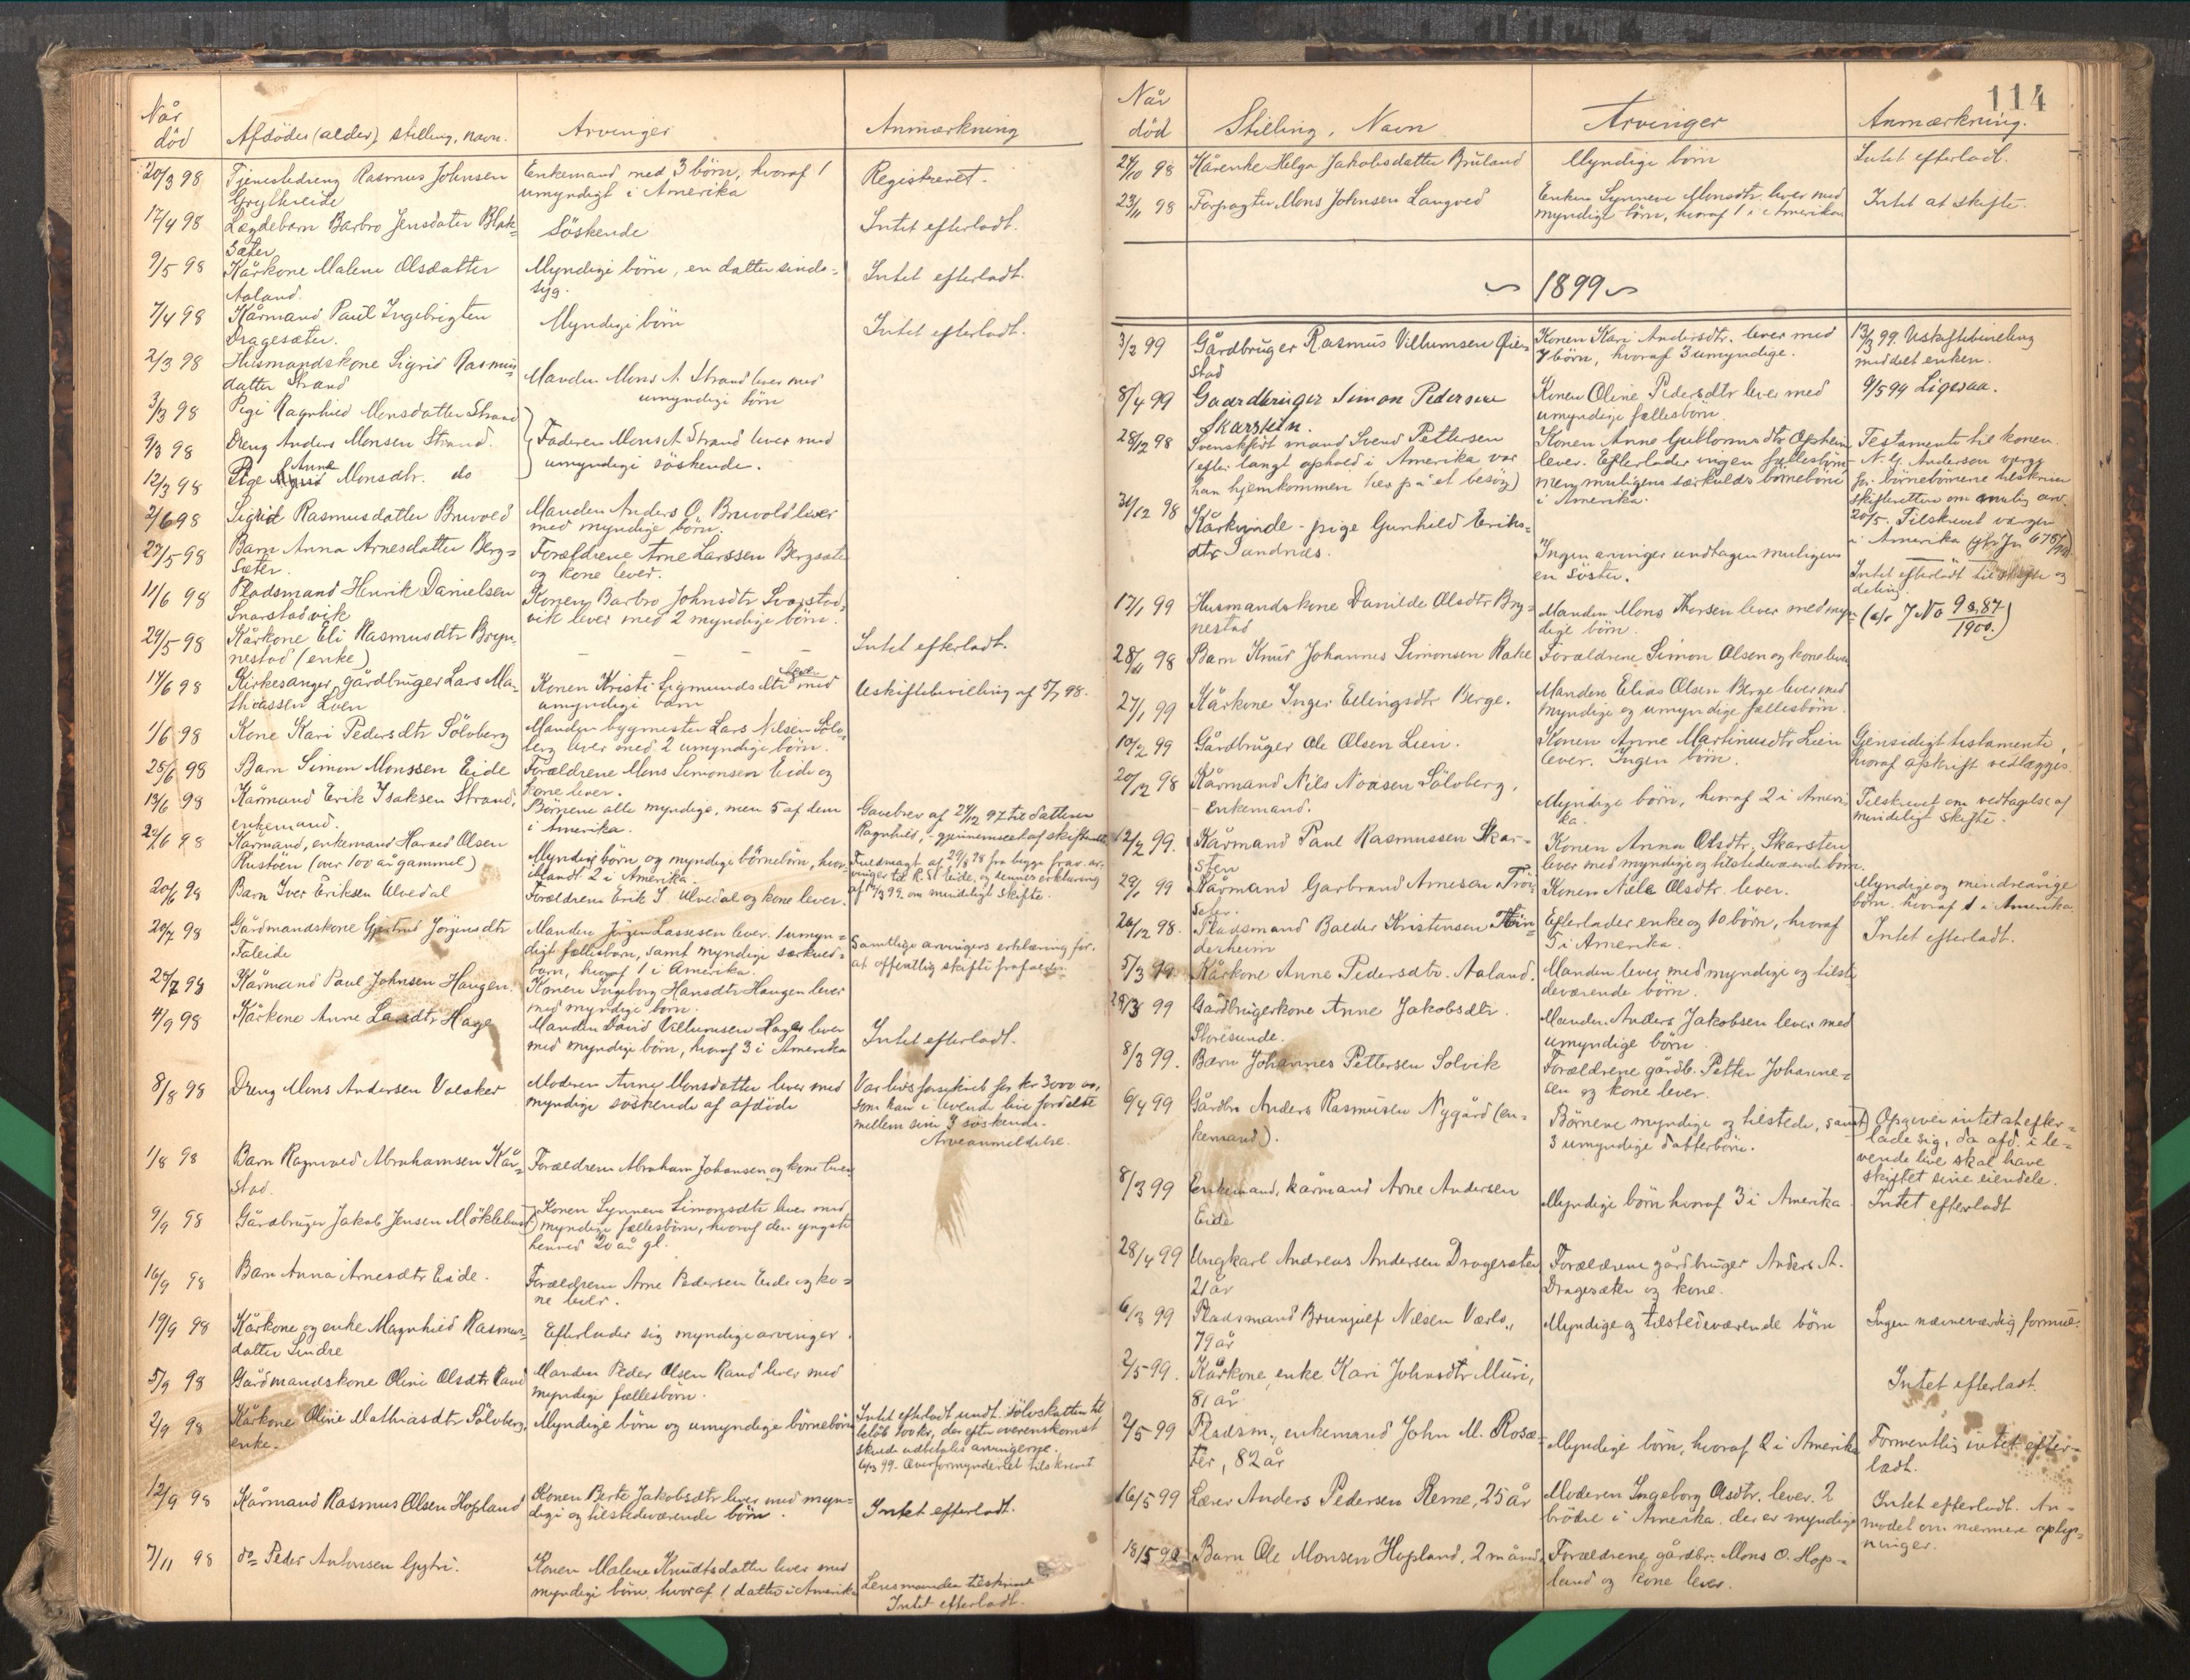 Når
død
Afdødes (alder), stilling, navn.
Arvinger
Anmærkning
20/3 98
Tjenestedreng Rasmus Johnsen
Grytereide
Enkemand med 3 børn, hvoraf 1
umyndigt i Amerika
Registreret.
17/4 98
Lægdebarn Barbro Jensdatter Blak-
sæter
Söskende
Intet efterladt.
9/5 98
Kårkone Malene Olsdatter
Aaland.
Myndige börn, en datter sinds-
syg.
Intet efterladt.
7/4 98
Kårmand Paul Ingebrigten
Dragesæter.
Myndige börn
Intet efterladt.
2/3 98
Husmandskone Sigrid Rasmus-
datter Strand
Manden Mons A. Strand lever med
umyndige börn
3/3 98
Pige Ragnhild Monsdatter Strand
9/3 98
Dreng Anders Monsen Strand.
Faderen Mons A Strand lever med
umyndige söskende.
12/3 98
Pige Anne Monsdtr. do
2/6 98
Sigrid Rasmusdatter Bruvold
Manden Anders O. Bruvold lever
med myndige börn.
27/5 98
Barn Anna Arnesdatter Berg-
sæter.
Forældrene Arne Larssen Bergsæter
og kone lever.
11/6 98
Pladsmand Henrik Danielsen
Svarstadvik
Konen Barbro Johnsdtr Svarstad-
vik lever med 2 myndige börn.
29/5 98
Kårkone Eli Rasmusdtr Bryn-
nestad (enke)
Intet efterladt.
14/6 98
Kirkesanger, gårdbruger Lars Ma-
thiassen Loen
Konen Kristi Sigmundsdtr lever med
umyndige barn
Uskiftebevilling af 5/7 98.
1/6 98
Kone Kari Pedersdtr Sölvberg
Manden bygmester Lars Nilsen Sölv-
berg lever med 2 umyndige börn.
25/6 98
Barn Simon Monssen Eide
Forældrene Mons Simonsen Eide og
kone lever.
13/6 98
Kårmand Erik Isaksen Strand,
enkemand.
Börnene alle myndige, men 5 af dem
i Amerika.
Gavebrev af 24/12 97 til datteren
Ragnhild, i gjennemseet af skifteretten
24/6 98
Kårmand, enkemand Harald Olsen
Rustöen (over 100 år gammel)
Myndige börn og myndige börnebörn, hvor-
iblandt 2 i Amerika.
Fuldmagt af 29/8 98 fra begge frav. ar-
vinger til R. St. Eide, og dennes erklæring
af 99 om mindeligt skifte.
20/6 98
Barn Iver Eriksen Ulvedal
Forældrene Erik I. Ulvedal og kone lever.
20/7 98
Gårdmandskone Gjertrud Jörgensdtr
Faleide
Manden Jörgen Lassesen lever. 1 umyn-
digt fællesbarn, samt myndige særkuld-
barn, hvoraf 1 i Amerika.
Samtlige arvingers erklæring for,
at offentlig skifte frafalden
25/7 98
Kårmand Paul Johnsen Haugen.
Konen Ingeborg Hansdtr Haugen lever
med myndige börn.
4/9 98
Kårkone Anne Larsdtr Hage
Manden David Villumsen Hage lever
med myndige börn, hvoraf 3 i Amerika
Intet efterladt.
8/8 98
Dreng Mons Andersen Valaker
Moderen Anne Monsdatter lever med
myndige söskende af afdöde
Var livsforsikret for kr 3000 00,
som han i levende live fordelte
mellem sine 9 söskende.
Arveanmeldelse.
1/8 98
Barn Ragnvald Abrahamsen Kår-
stad.
Forældrene Abraham Johansen og kone lever
9/9 98
Gårdbruger Jakob Jensen Mökleb&ust
Konen Synneve Simonsdtr lever med
myndige fællesbörn, hvoraf den yngste
henved 20 år gl.
16/9 98
Barn Anna Arnesdtr Eide.
Forældrene Arne Pedersen Eide og ko-
ne lever.
19/9 98
Kårkone og enke Magnhild Rasmus-
datter Lindre
Efterlader sig myndige arvinger
5/9 98
Gårdmandskone Oline Olsdtr Rand
Manden Peder Olsen Rand lever med
myndige fællesbörn.
2/9 98
Kårkone Oline Mathiasdtr Sölvberg,
enke.
Myndige börn og umyndige börnebörn
Intet efterladt undt. sölvskatten til
beløb 100 kr, der efter overenskomst
skulde udbetales arvingerne.
99. Overformynderiet tilskrevet.
12/9 98
Kårmand Rasmus Olsen Hopland
Konen Berte Jakobsdtr lever med myn-
dige og tilstedeværende börn.
Intet efterladt.
7/11 98
do Peder Antonsen Gytri.
Konen Malene Knudtsdatter lever med
myndige börn, hvoraf 1 datter i Amerika
Lensmanden tilskrevet
Intet efterladt.
114
Når
död
Stilling, Navn
Arvinger
Anmærkning.
24/10 98
Kårenke Helga Jakobsdatter Bruland
Myndige börn
Intet efterladt.
23/11 98
Forpagter Mons Johnsen Langved
Enken Synneve Monsdtr. lever med
myndige börn, hvoraf 1 i Amerika
Intet at skifte
1899
3/2 99
Gårdbruger Rasmus Villumsen Gie-
stad
Konen Kari Andersdtr. lever med
7 börn, hvoraf 3 umyndige.
13/3 99. Uskiftebevilling
meddelt enken.
8/4 99
Gaardbruger Simon Pedersen
Skarstein.
Konen Oline Pedersdtr lever med
umyndige fællesbörn.
9/5 99 Ligesaa.
28/12 98
Svenskfödt mand Svend Pettersen
(efter langt ophold i Amerika var
han hjemkommen her på et besög)
Konen Anne Guttormsdtr Ophem
lever. Efterlader ingen fællesbörn
men muligens særkulds börnebörn
i Amerika.
Testamente til konen.
N. G. Andersen værge
for börnebörnene tilskreven
skifteretten om mulig arv.
20/5. Tilskrevet værgen
i Amerika
31/12 98
Kårkvinde - pige Gunhild Eriks-
dtr Sandnæs.
Ingen arvinger undtagen muligens
en Söster.
Intet efterladt til skifte og
deling.
17/1 99
Husmandskone Danilde Olsdtr Bry-
nestad
Manden Mons Thorsen lever med myn-
dige börn.
(cfr J No 9 87/1900.)
28/11 98
Barn Knut Johannes Simonsen Rake
Forældrene Simon Olsen og kone lever
27/1 99
Kårkone Inger Ellingsdtr Berge.
Manden Elias Olsen Berge lever med
myndige og umyndige fællesbörn.
10/2 99
Gårdbruger Ole Olsen Lien.
Konen Anne Martinusdtr Lien
lever. Ingen börn.
Gjensidigt testamente,
hvoraf afskrift vedlægges.
20/12 98
Kårmand Nils Noasen Sölvberg,
- Enkemand.
Myndige börn, hvoraf 2 i Ameri-
ka.
Tilskrevet om vedtagelse af
mindeligt skifte
12/2 99.
Kårmand Paul Rasmussen Skar-
sten
Konen Anna Olsdtr. Skarsten
lever med myndige og tilstedeværende börn.
29/1 99
Kårmand Garbrand Arnesen Tröi-
seter.
Konen Nille Olsdtr. lever.
Myndige og mindreårige
börn, hvoraf 1 i Amerika.
26/12 98.
Pladsmand Balder Kristensen Thin-
derheim
Efterlader enke og 10 börn, hvoraf
5 i Amerika.
Intet efterladt.
5/3 99
Kårkone Anne Pedersdtr. Aaland.
Manden lever med myndige og tilste-
deværende börn.
29/3 99
Gårdbrugerkone Anne Jakobsdtr.
Storesunde.
Manden Anders Jakobsen lever med
umyndige börn
8/3 99.
Barn Johannes Pettersen Solvik
Forældrene gårdb. Petter Johanne-
sen og kone lever.
6/4 99
Gårdbr Anders Rasmusen Nygård (en-
kemand).
Börnene myndige og tilstede, samt
3 umyndige datterbörn.
Opgiver intet at efter-
lade sig, da afd. i le-
vende live skal have
skiftet sine eiendele.
8/3 99
Enkemand, kårmand Arne Andersen
Eide
Myndige börn hvoraf 3 i Amerika
Intet efterladt
28/4 99
Ungkarl Andreas Andersen Dragesæter
21 år
Forældrene gårdbruger Anders A.
Dragesæter og kone.
6/3 99
Pladsmand Brunjulf Nilsen Værlo,,
79 år
Myndige og tilstedeværende börn
Ingen nævneværdig formue.
2/5 99.
Kårkone, enke Kari Johnsdtr Muri,
81 år
Intet efterladt.
2/5 99
Pladsm., enkemand John M. Rosæ-
ter, 82 år
Myndige börn, hvoraf 2 i Amerika
Formentlig intet efter-
ladt.
16/5 99
Lærer Anders Pedersen Reme, 25 år
Moderen Ingeborg Olsdtr. lever. 2
brödre i Amerika. der er myndige
Intet efterladt. An-
modet om nærmere oplys-
ninger.
18/5 99
Barn Ole Monsen Hopland, 2 månd.
Forældrene gårdbr. Mons O. Hop-
land og kone lever.